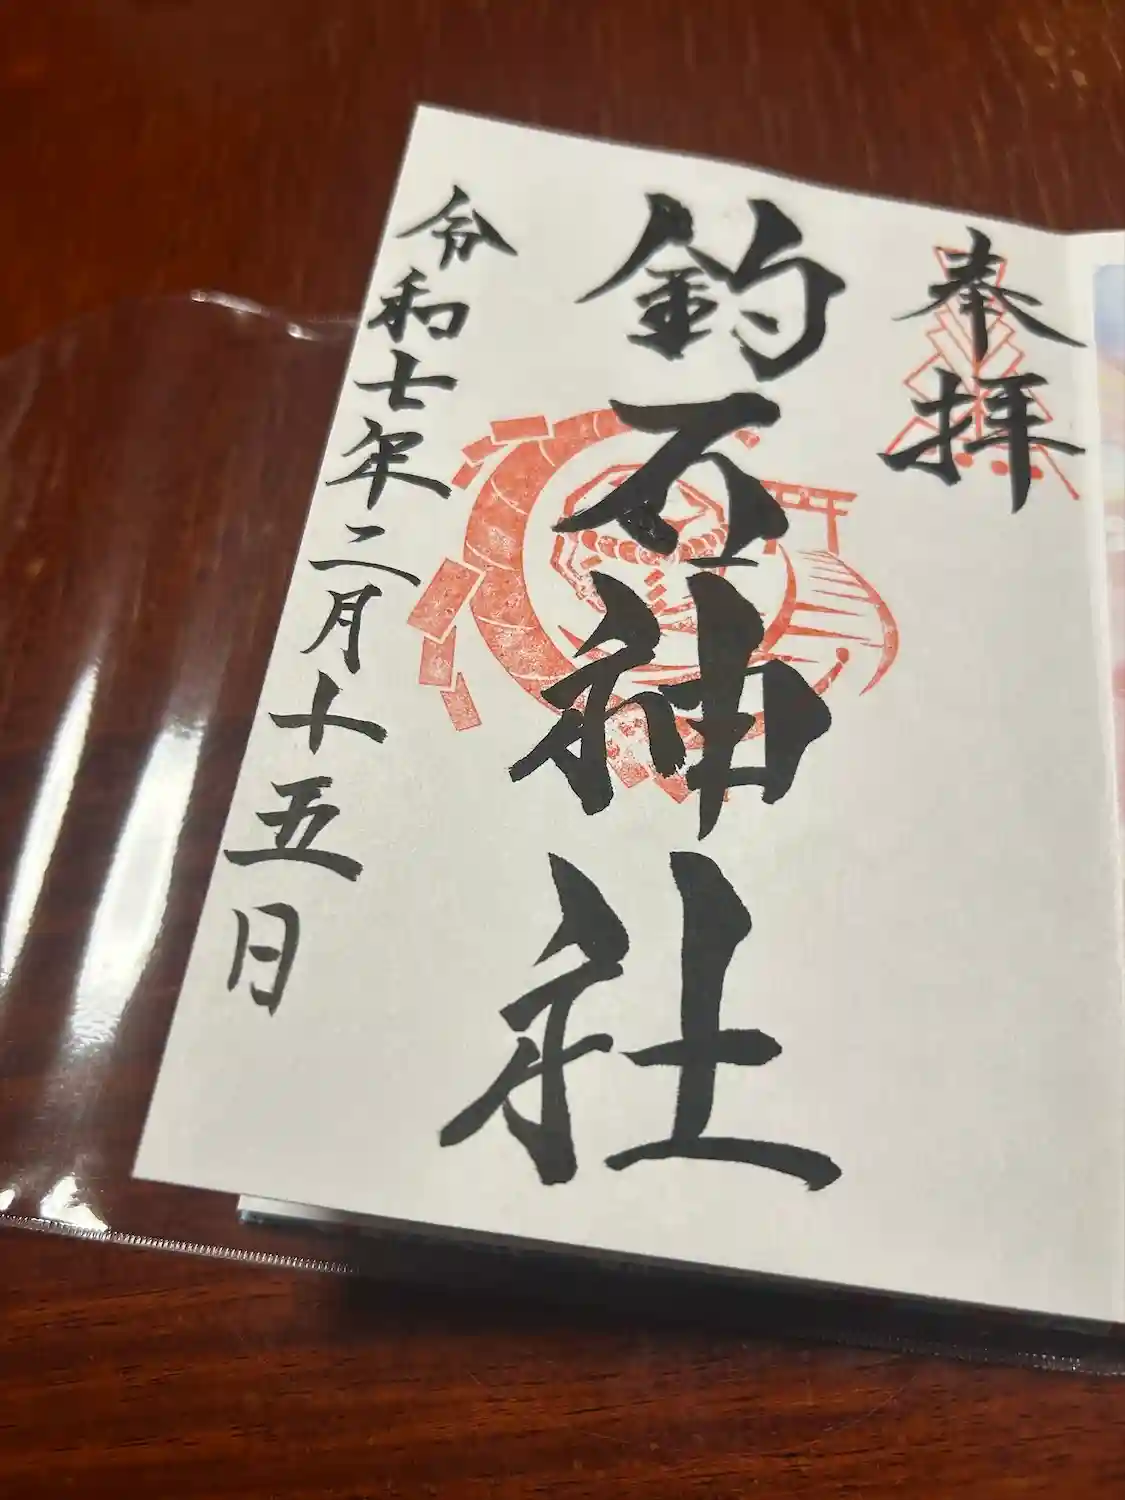 奉拝
釣石神社
令和七年二月十五日